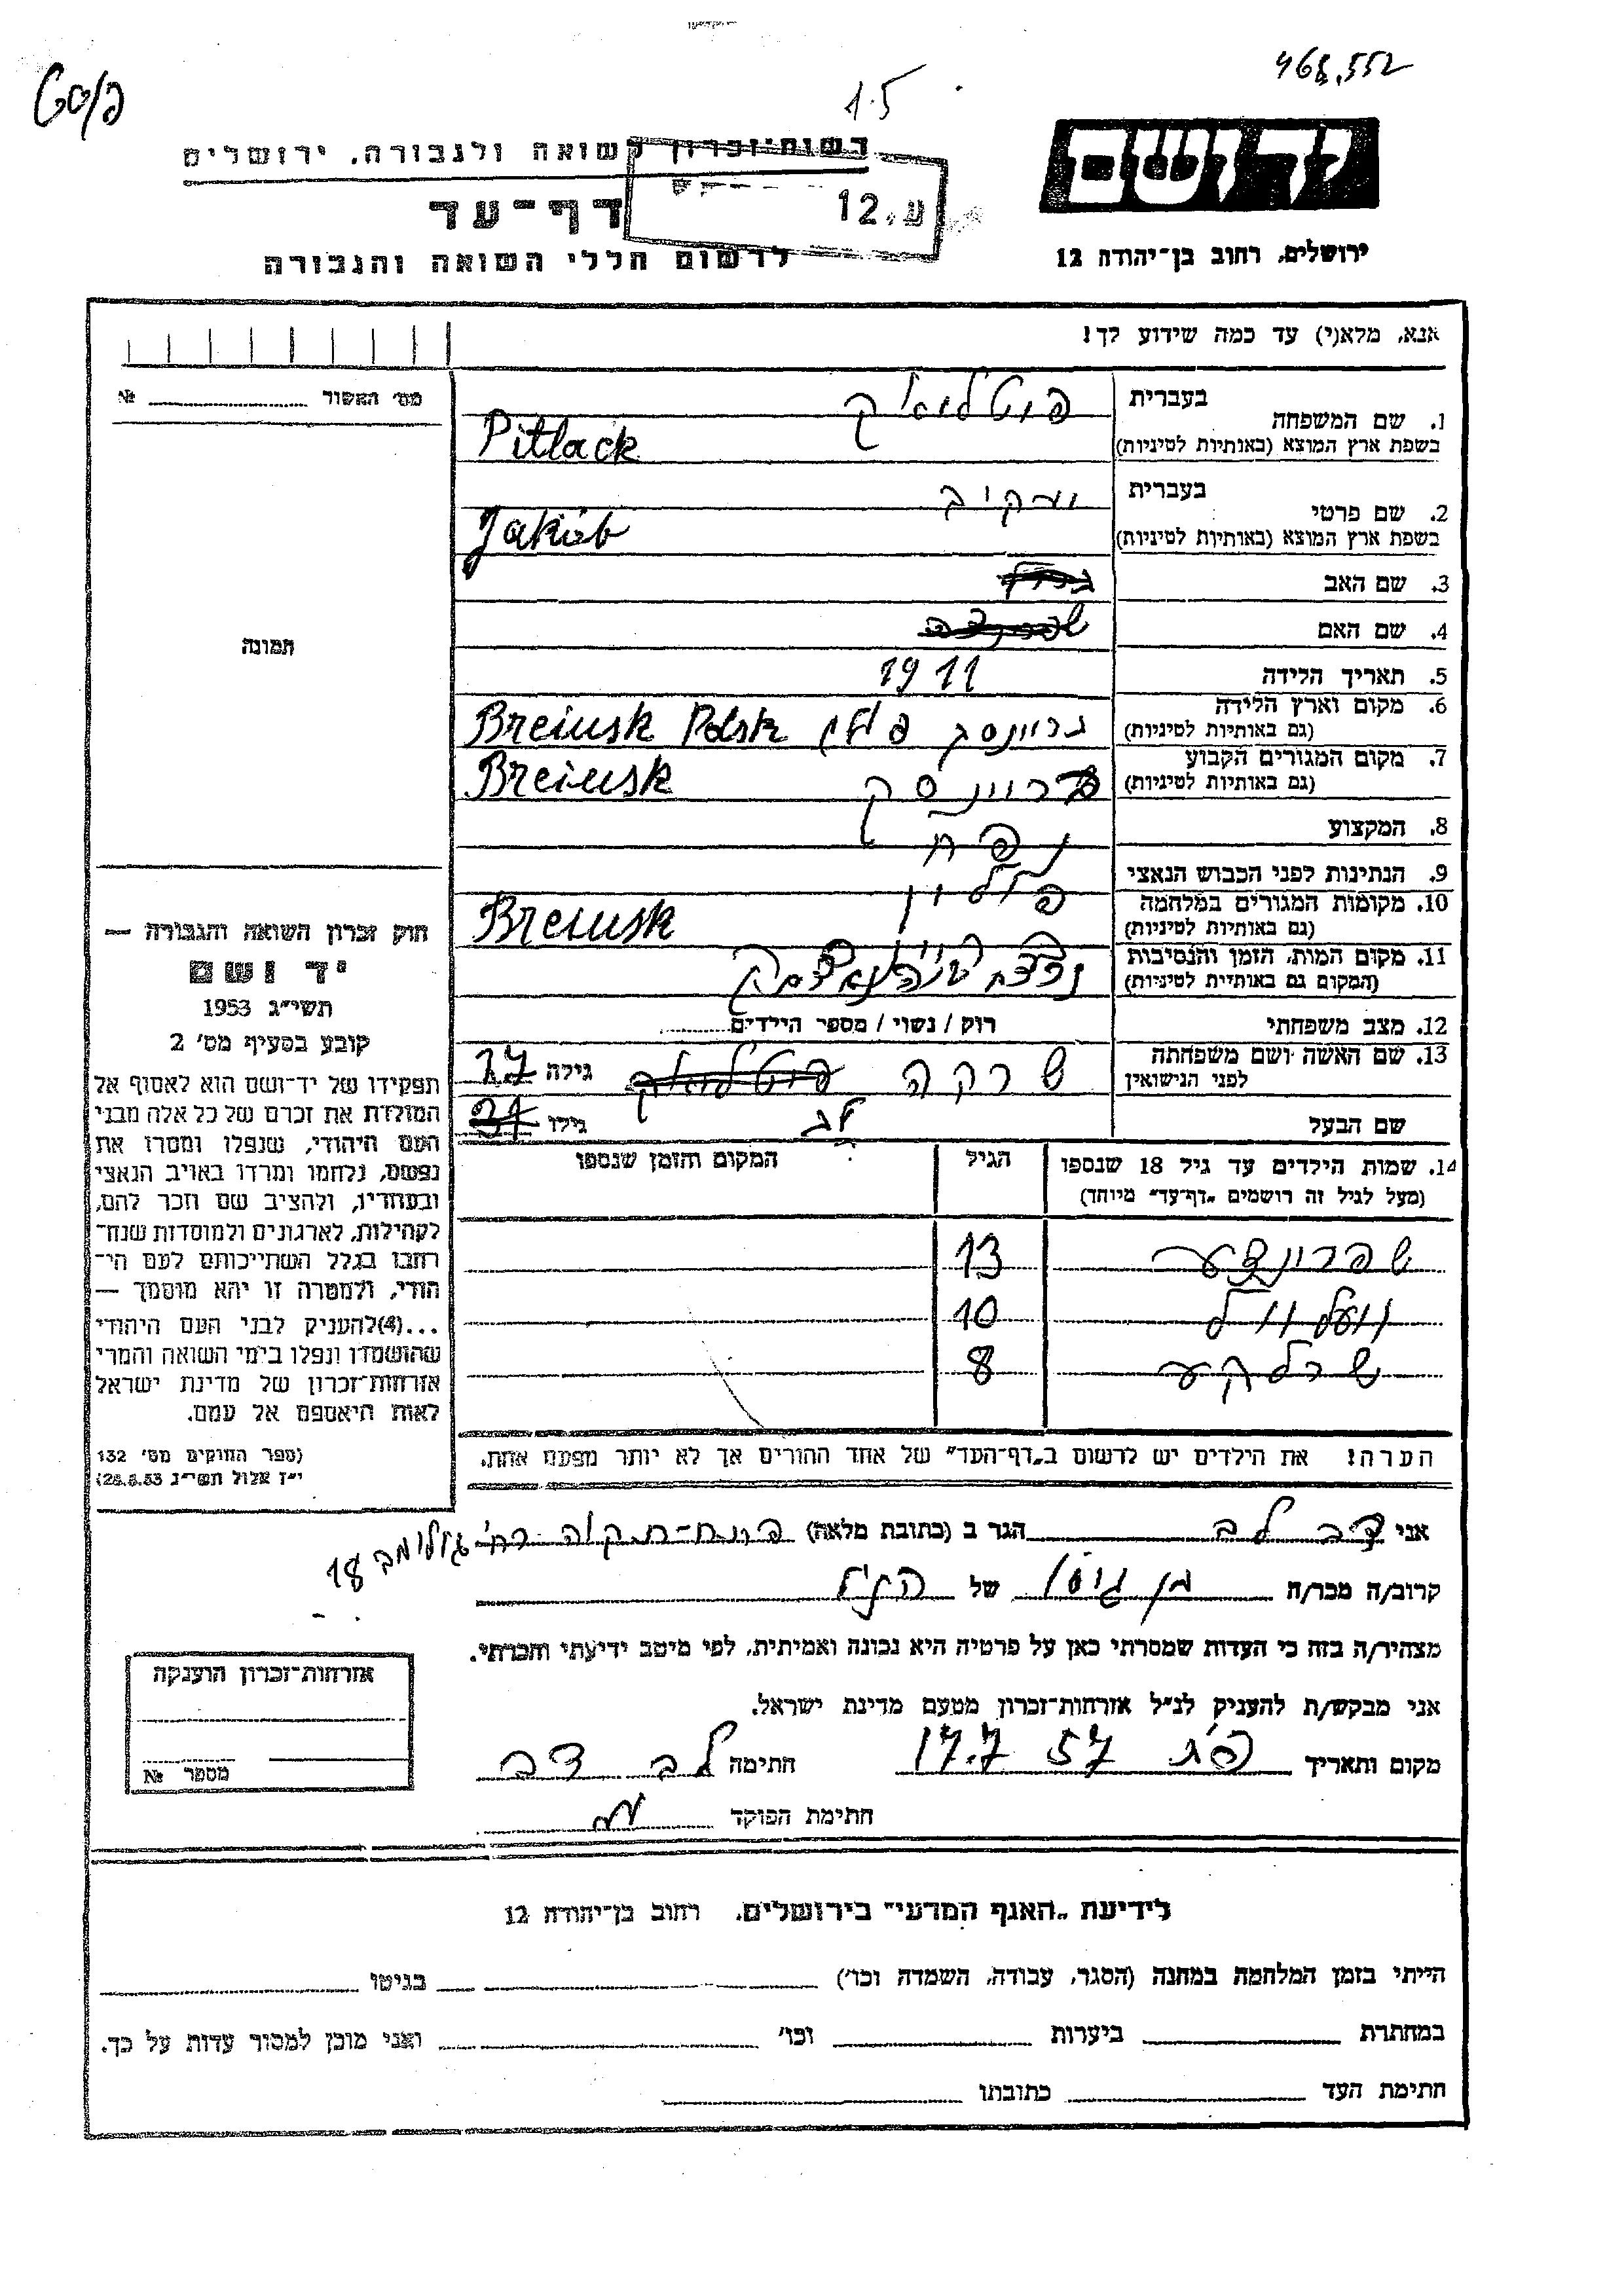 468,552
1.5
יד ושם
ירושלים, רחוב בן־יהודה 12
רשות־זכרון לשואה ולגבורה, ירושלים
דף־עד
ע. 12
לרשום חללי השואה והגבורה
אנא, מלא(י) עד כמה שידוע לך!
מס׳ האשור № ........
1. שם המשפחה
בעברית
בשפת ארץ המוצא (באותיות לטיניות)
Pitlack
2. שם פרטי
בעברית יעקיב
בשפת ארץ המוצא (באותיות לטיניות)
Jakób
3. שם האב
4. שם האם
5. תאריך הלידה 1911
6. מקום וארץ הלידה
(גם באותיות לטיניות)
ברוינסק פולין Breiusk Polsk
7. מקום המגורים הקבוע
(גם באותיות לטיניות)
ברוינסק Breiusk
8. המקצוע נפח
9. הנתינות לפני הכבוש הנאצי פולין
10. מקומות המגורים במלחמה
(גם באותיות לטיניות)
Breiusk
11. מקום המות, הזמן והנסיבות
(המקום גם באותיות לטיניות)
12. מצב משפחתי רוק / נשוי / מספר הילדים........
13. שם האשה ושם משפחתה
לפני הנישואין
שרקה גילה 27
שם הבעל גילו 37
14. שמות הילדים עד גיל 18 שנספו
(מעל לגיל זה רושמים „דף־עד״ מיוחד)
הגיל
המקום והזמן שנספו
שפרינצע 13
וועלוול 10
שרלקע 8
הערה! את הילדים יש לרשום ב„דף־העד״ של אחד ההורים אך לא יותר מפעם אחת.
תמונה
חוק זכרון השואה והגבורה —
יד ושם
תשי״ג 1953
קובע בסעיף מס׳ 2
תפקידו של יד־ושם הוא לאסוף אל
המולדת את זכרם של כל אלה מבני
העם היהודי, שנפלו ומסרו את
נפשם, נלחמו ומרדו באויב הנאצי
ובעוזריו, ולהציב שם וזכר להם,
לקהילות, לארגונים ולמוסדות שנח־
רבו בגלל השתייכותם לעם הי־
הודי, ולמטרה זו יהא מוסמך —
...(4) להעניק לבני העם היהודי
שהושמדו ונפלו בימי השואה והמרי
אזרחות־זכרון של מדינת ישראל
לאות היאספם אל עמם.
(ספר החוקים מס׳ 132
י״ז אלול תשי״ג 28.8.53)
אני דב לב הגר ב (כתובת מלאה) פתח־תקוה רח׳ גולומב 18
קרוב/ה מכר/ה בן גיסו של הנ״ל
מצהיר/ה בזה כי העדות שמסרתי כאן על פרטיה היא נכונה ואמיתית, לפי מיטב ידיעתי והכרתי.
אני מבקש/ת להעניק לנ״ל אזרחות־זכרון מטעם מדינת ישראל.
מקום ותאריך פ״ת 17.7 57 חתימה לב דב
חתימת הפוקד
אזרחות־זכרון הוענקה
מספר №
לידיעת „האגף המדעי״ בירושלים, רחוב בן־יהודה 12
הייתי בזמן המלחמה במחנה (הסגר, עבודה, השמדה וכו׳) בגיטו
במחתרת ביערות וכו׳ ואני מוכן למסור עדות על כך.
חתימת העד כתובתו